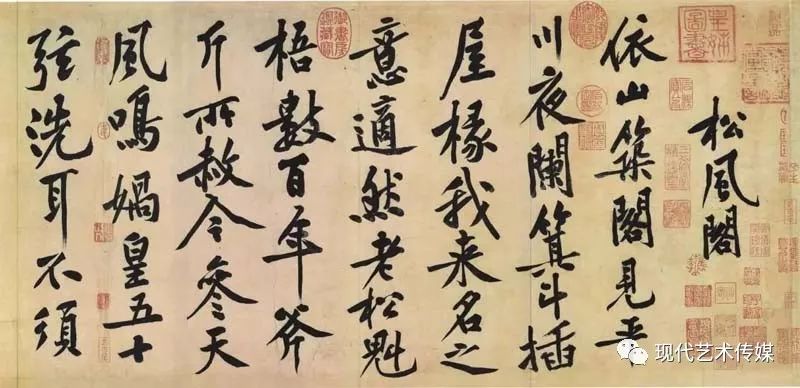 松風閣
依山築閣見平
川夜闌箕斗插
屋椽我来名之
意適然老松魁
梧數百年斧
斤所赦今參天
風鳴媧皇五十
弦洗耳不須
现代艺术传媒